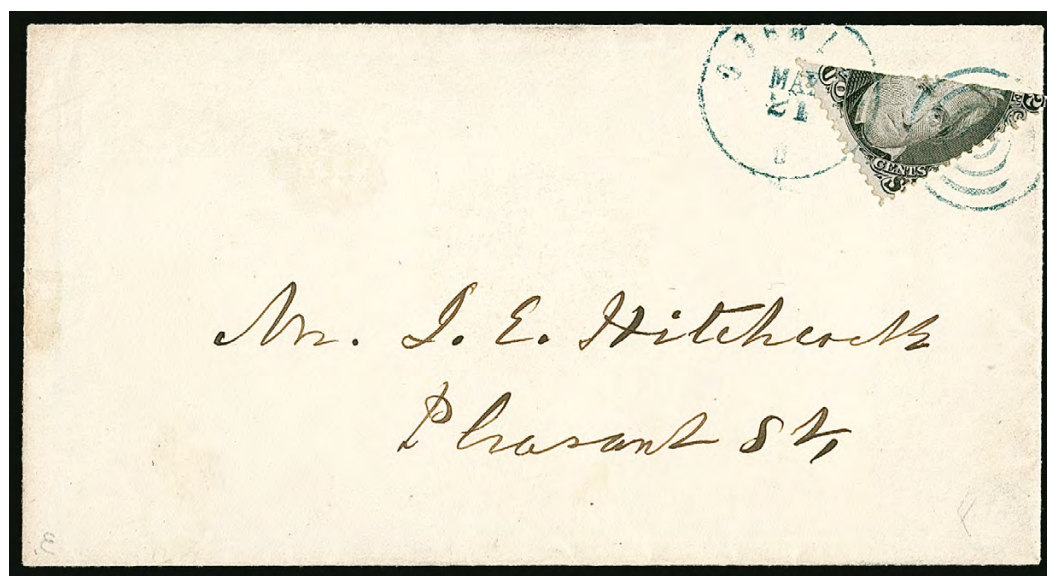 MAY
21
CENTS
Mr. I. E. Hitchcock
Pleasant St,